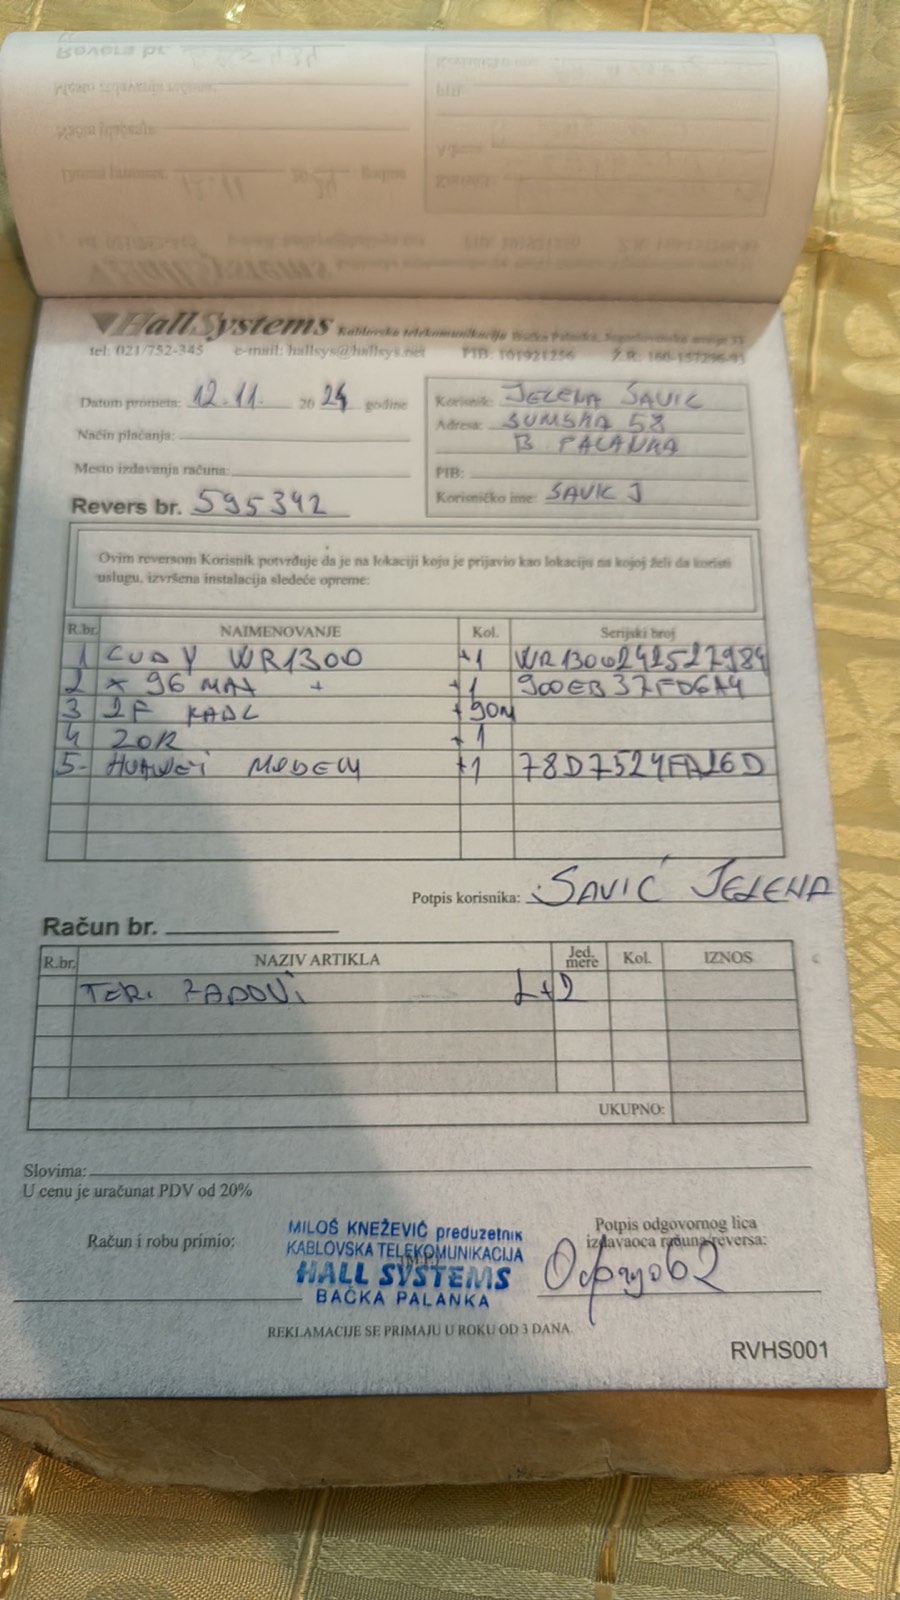 HallSystems Kablovska telekomunikacija Bačka Palanka,
tel: 021/752-345 e-mail: hallsys@hallsys.net PIB: 101921256 Ž.R.: 160-157296-93
Datum prometa: 12.11. 2024 godine
Način plaćanja:
Mesto izdavanja računa:
Revers br. 595392
Korisnik: JELENA SAVIC
Adresa: SUMSKA 58
B PALANKA
PIB:
Korisničko ime: SAVIC J
Ovim reversom Korisnik potvrđuje da je na lokaciji koju je prijavio kao lokaciju na kojoj želi da koristi
uslugu, izvršena instalacija sledeće opreme:
R.br. NAIMENOVANJE Kol. Serijski broj
1 CUDY WR1300 +1 WR1300242527984
2 X 96 MAX + +1 900EB37FD6A4
3 2F KABL +90M
4 ZOK +1
5- HUAWEI MODEM +1 78D7524FA26D
Potpis korisnika: SAVIĆ JELENA
Račun br.
R.br. NAZIV ARTIKLA Jed. mere Kol. IZNOS
TER. RADOVI 2+2
UKUPNO:
Slovima:
U cenu je uračunat PDV od 20%
Račun i robu primio:
MILOŠ KNEŽEVIĆ preduzetnik
KABLOVSKA TELEKOMUNIKACIJA
HALL SYSTEMS
BAČKA PALANKA
Potpis odgovornog lica
izdavaoca računa/reversa:
REKLAMACIJE SE PRIMAJU U ROKU OD 3 DANA
RVHS001